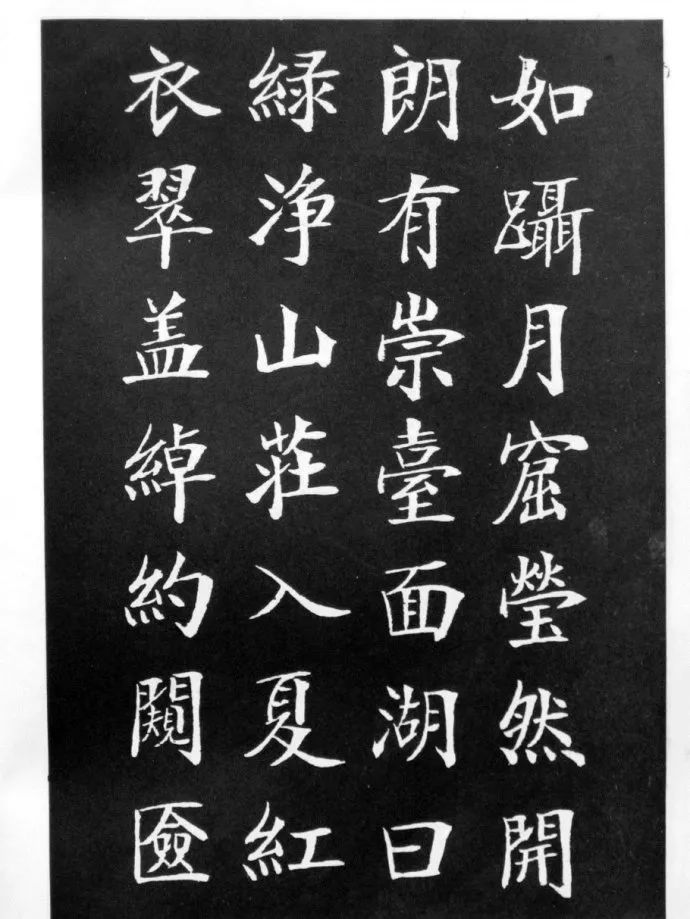 如躡月窟瑩然開
朗有崇臺面湖曰
緑淨山莊入夏紅
衣翠盖綽約闚匳